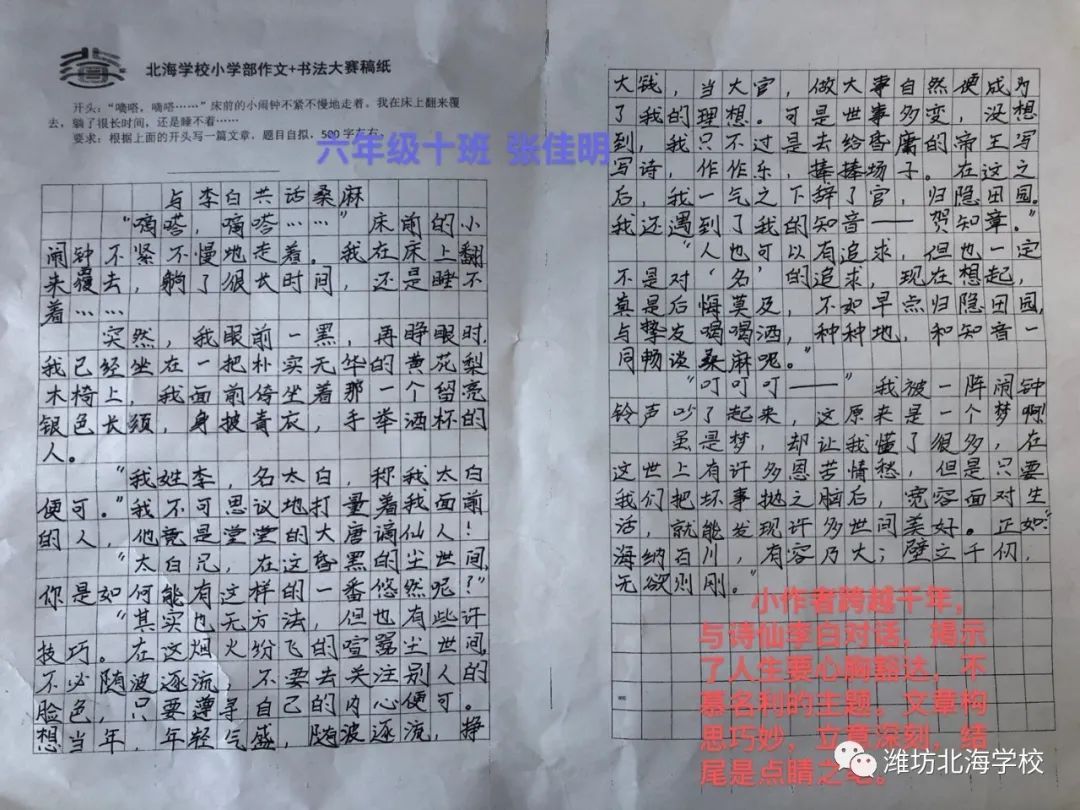 北海学校小学部作文+书法大赛稿纸
开头：“嘀嗒，嘀嗒……”床前的小闹钟不紧不慢地走着。我在床上翻来覆
去，躺了很长时间，还是睡不着……
要求：根据上面的开头写一篇文章，题目自拟，500字左右。
六年级十班 张佳明
与李白共话桑麻
“嘀嗒，嘀嗒……”床前的小
闹钟不紧不慢地走着。我在床上翻
来覆去，躺了很长时间，还是睡不
着……
突然，我眼前一黑，再睁眼时，
我已经坐在一把朴实无华的黄花梨
木椅上，我面前倚坐着那一个留亮
银色长须，身披青衣，手举酒杯的
人。
“我姓李，名太白，称我太白
便可。”我不可思议地打量着我面前
的人，他竟是堂堂的大唐谪仙人！
“太白兄，在这昏黑的尘世间，
你是如何能有这样的一番悠然呢？”
“其实也无方法，但也有些许
技巧。在这烟火纷飞的喧嚣尘世间，
不必随波逐流，不要去关注别人的
脸色，只要遵寻自己的内心便可。
想当年，年轻气盛，随波逐流，挣
大钱，当大官，做大事自然便成为
了我的理想。可是世事多变，没想
到，我只不过是去给昏庸的帝王写
写诗，作作乐，捧捧场子。在这之
后，我一气之下辞了官，归隐田园。
我还遇到了我的知音——贺知章。”
“人也可以有追求，但也一定
不是对‘名’的追求，现在想起，
真是后悔莫及，不如早点归隐田园，
与挚友喝喝酒，种种地，和知音一
同畅谈桑麻呢。”
“叮叮叮——”我被一阵闹钟
铃声吵了起来，这原来是一个梦啊！
虽是梦，却让我懂了很多，在
这世上有许多恩苦情愁，但是只要
我们把坏事抛之脑后，宽容面对生
活，就能发现许多世间美好。正如“
海纳百川，有容乃大；壁立千仞，
无欲则刚。”
小作者跨越千年，
与诗仙李白对话，揭示
了人生要心胸豁达，不
慕名利的主题。文章构
思巧妙，立意深刻，结
尾是点睛之笔。
潍坊北海学校